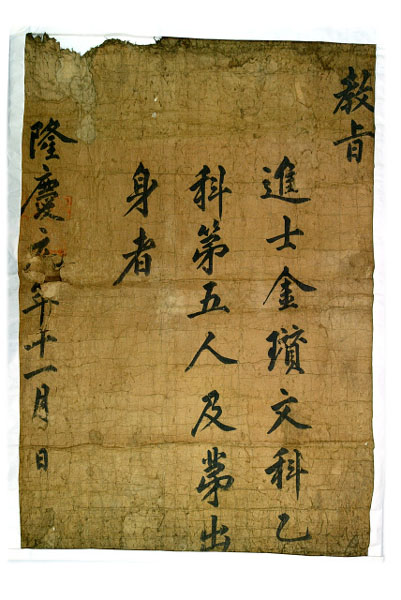 教旨
進士金瓚文科乙
科第五人及第出
身者
隆慶元年十一月日